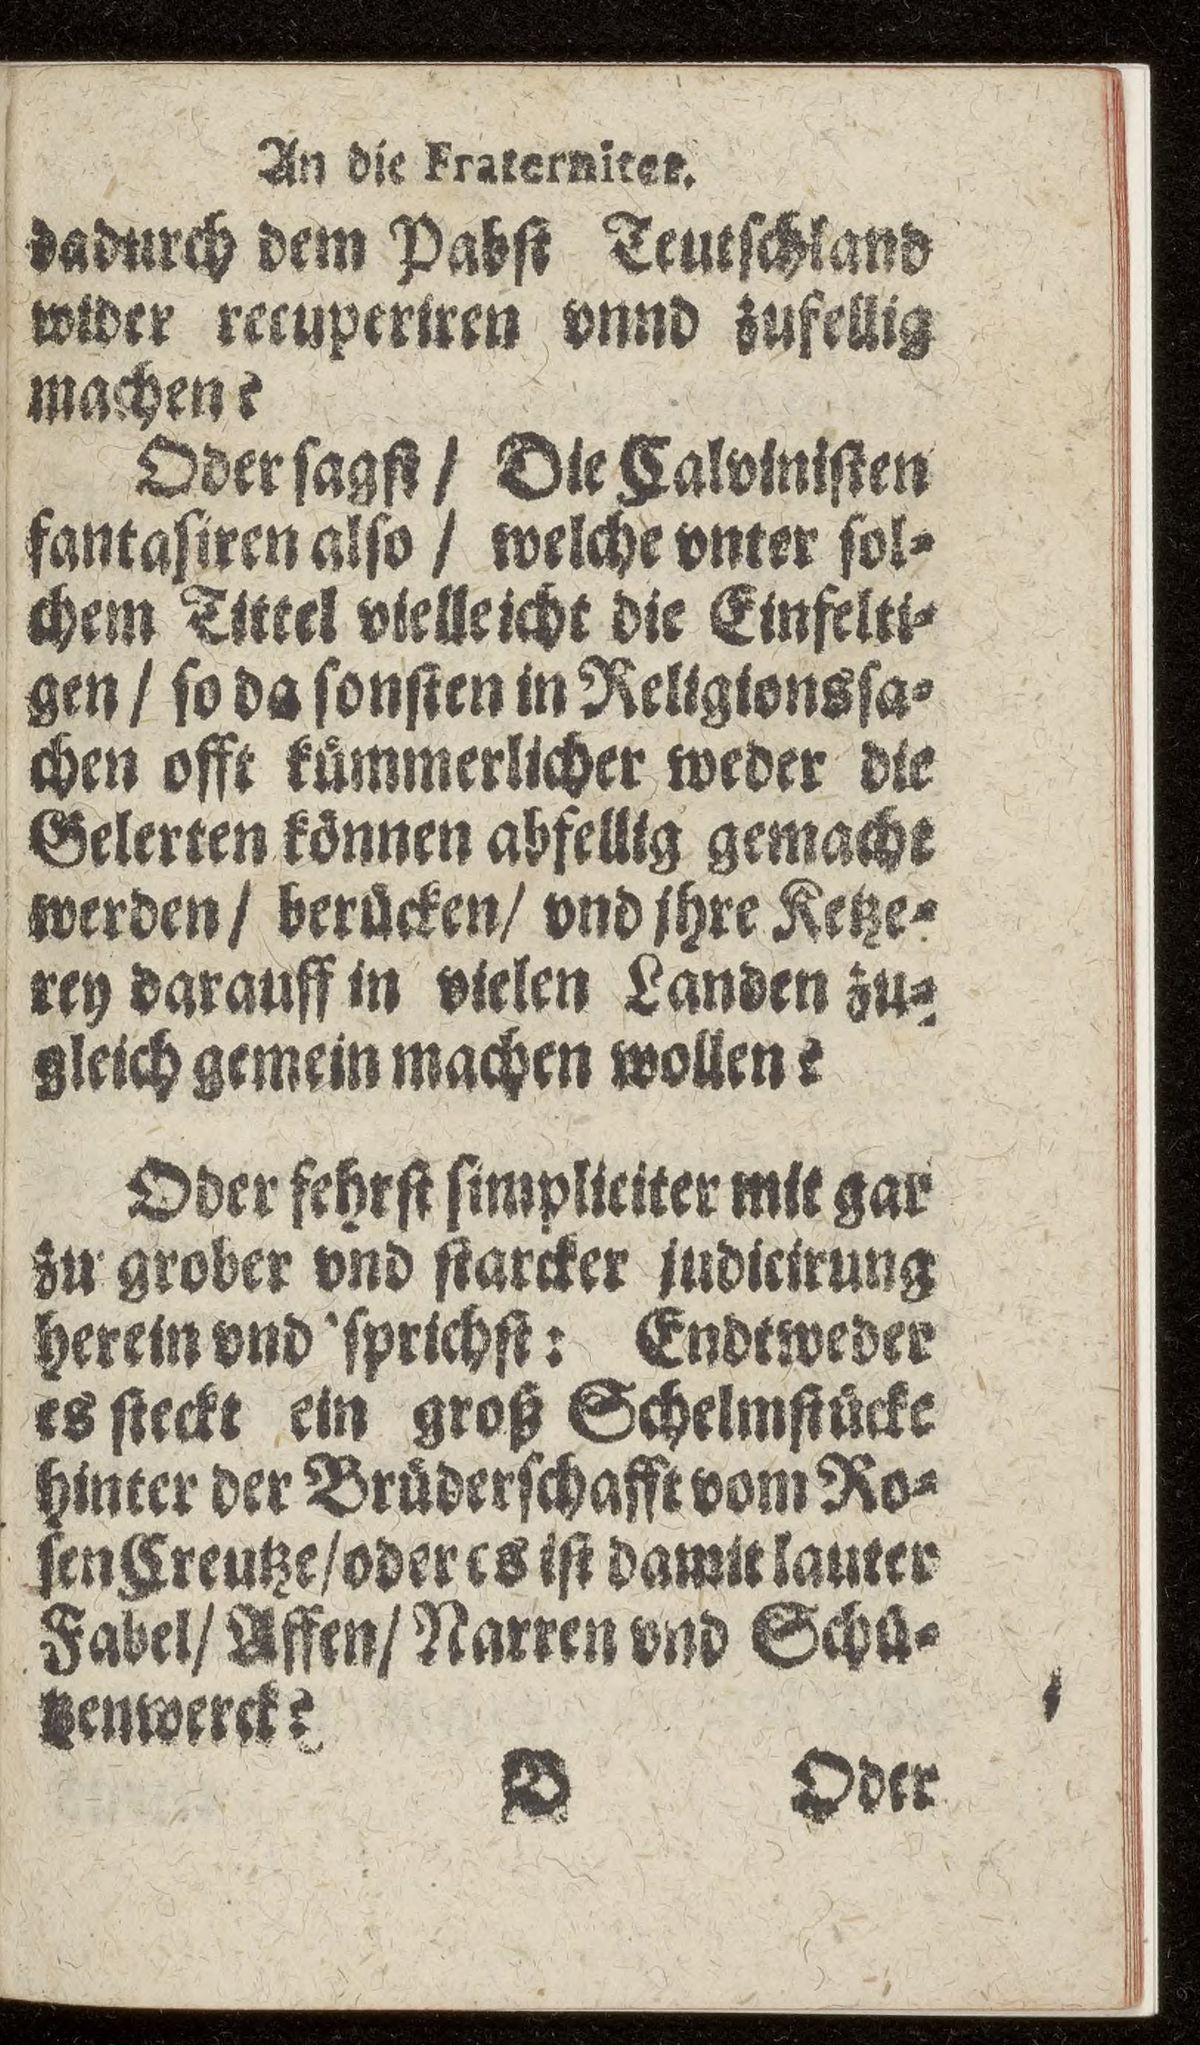 An die Fraternitet.
dadurch dem Pabst Teutschland
wider recuperiren vnnd zufellig
machen?
Oder sagst / Die Calvinisten
fantasiren also / welche vnter sol-
chem Tittel vielleicht die Einfelti-
gen / so da sonsten in Religionssa-
chen offt kümmerlicher weder die
Gelerten können abfellig gemacht
werden / berücken / vnd jhre Ketze-
rey darauff in vielen Landen zu-
gleich gemein machen wollen?
Oder fehrst simpliciter mit gar
zu grober vnd starcker judicirung
herein vnd sprichst: Endtweder
es steckt ein groß Schelmstücke
hinter der Brüderschafft vom Ro-
sen Creutze / oder es ist damit lauter
Fabel / Affen / Narren vnd Schü-
tzenwerck?
D Oder